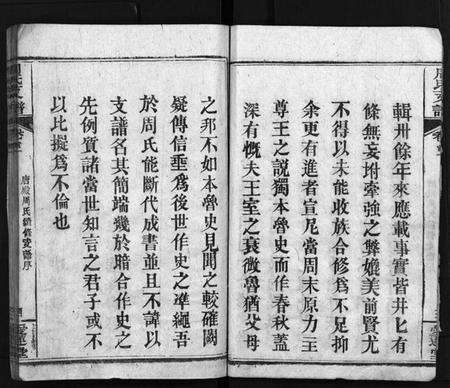 輯卅餘年來應載事實皆井匕有
條無妄拊牽強之弊媲美前賢尤
不得以未能收族合修爲不足抑
余更有進者宣尼當周末原力主
尊王之說獨本魯史而作春秋蓋
深有慨夫王室之衰微魯猶父母
之邦不如本魯史見聞之較確闕
疑傳信垂爲後世作史之準繩吾
於周氏能斷代成書並且不諱以
支譜名其簡端幾於暗合作史之
先例質諸當世知言之君子或不
以比擬爲不倫也
唐殿周氏續修支譜序